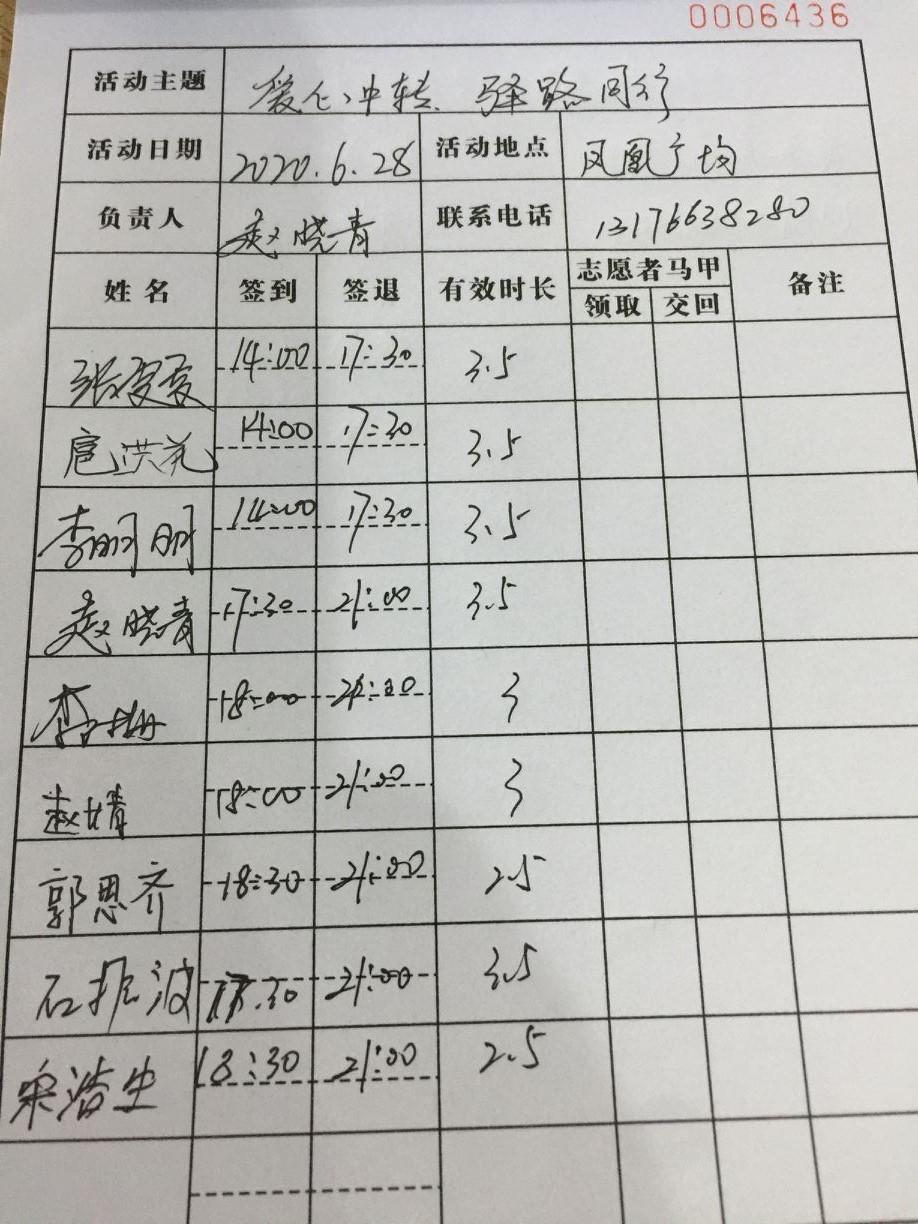 0006436
活动主题 爱心中转、驿路同行
活动日期 2020.6.28 活动地点 凤凰广场
负责人 赵晓青 联系电话 13176638280
姓名 签到 签退 有效时长 志愿者马甲 备注
领取 交回
张爱爱 14:00 17:30 3.5
扈洪花 14:00 17:30 3.5
李明明 14:00 17:30 3.5
赵晓青 17:30 21:00 3.5
李姗 18:00 21:00 3
赵婧 18:00 21:00 3
郭思齐 18:30 21:00 2.5
石振波 17:30 21:00 3.5
18:30 21:00 2.5